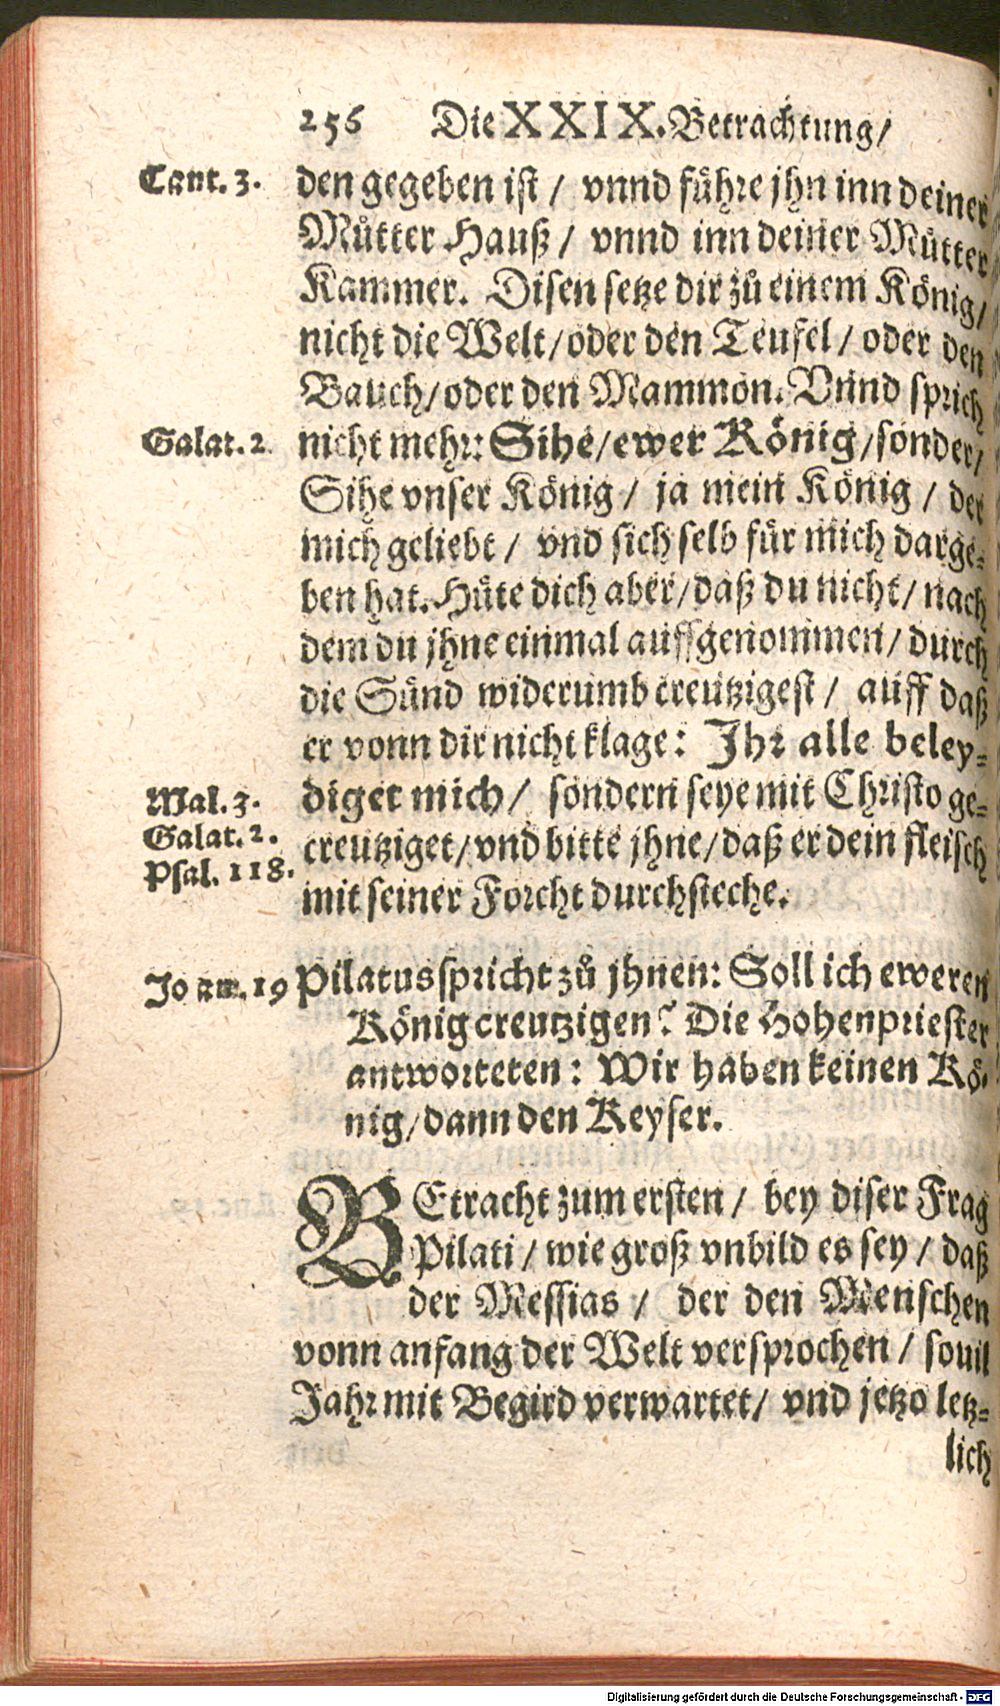 256 Die XXIX. Betrachtung/
Cant. 3. den gegeben ist / vnnd führe jhn inn deiner
Můtter Hauß / vnnd inn deiner Můtter
Kammer. Disen setze dir zů einem König/
nicht die Welt/oder den Teufel / oder den
Bauch/oder den Mammon. Vnnd sprich
Galat. 2. nicht mehr: Sihe/ewer König/sonder/
Sihe vnser König / ja mein König / der
mich geliebt / vnd sich selb für mich darge-
ben hat. Hüte dich aber/daß du nicht/ nach
dem du jhne einmal auffgenommen/ durch
die Sünd widerumb creutzigest / auff daß
er vonn dir nicht klage: Jhr alle beley-
Mal. 3. diget mich / sondern seye mit Christo ge-
Galat. 2. creutziget/vnd bitte jhne/daß er dein fleisch
Psal. 118. mit seiner Forcht durchsteche.
Joann. 19 Pilatus spricht zů jhnen: Soll ich eweren
König creutzigen? Die Hohenpriester
antworteten: Wir haben keinen Kö-
nig/dann den Keyser.
BEtracht zum ersten / bey diser Frag
Pilati / wie groß vnbild es sey / daß
der Messias / der den Menschen
vonn anfang der Welt versprochen / souil
Jahr mit Begird verwartet/ vnd jetzo letz-
lich
Digitalisierung gefördert durch die Deutsche Forschungsgemeinschaft - DFG